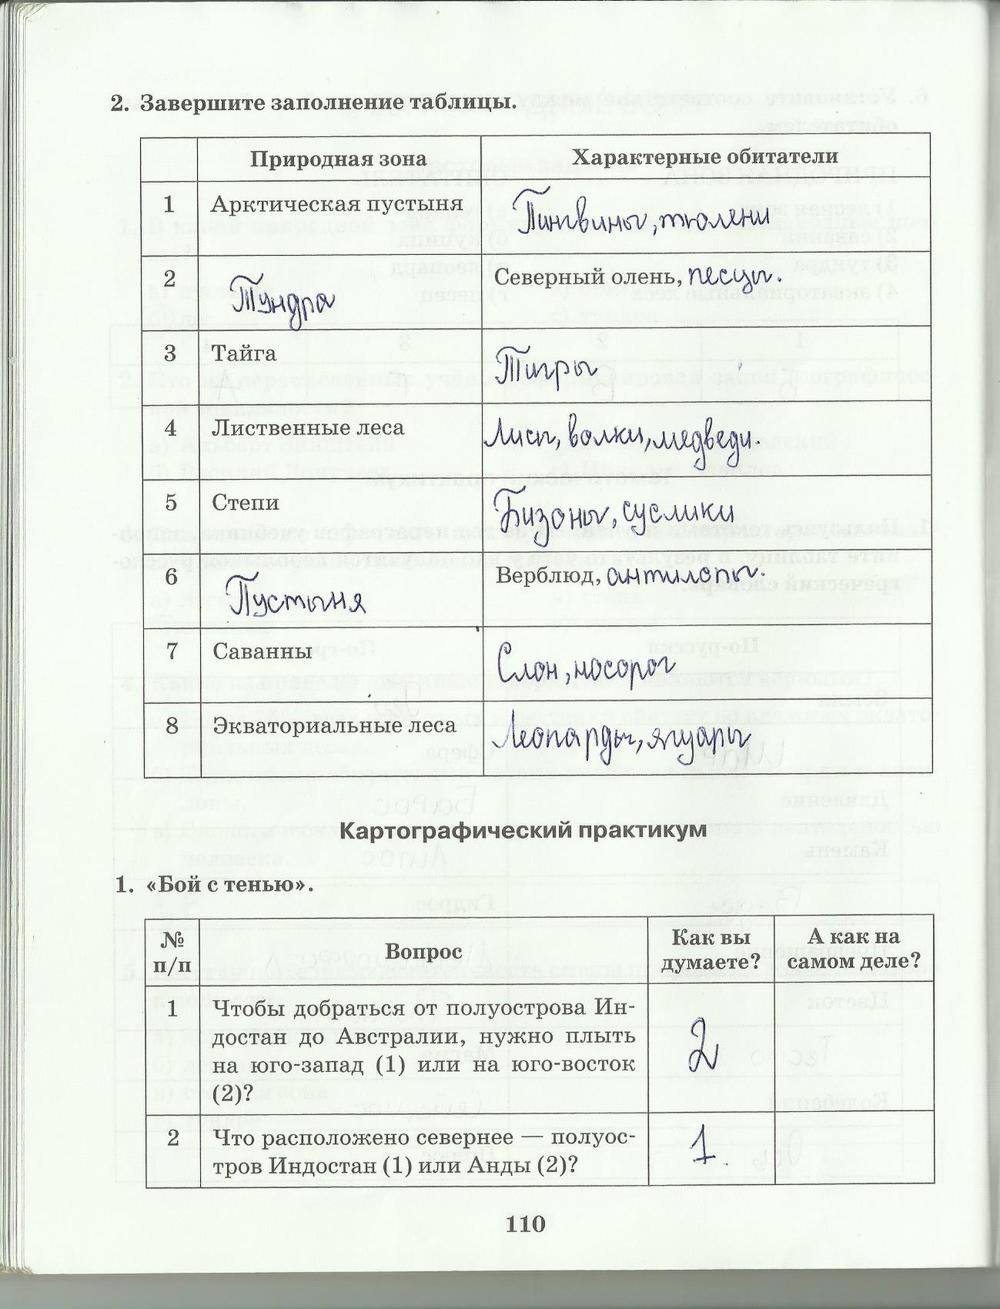 2. Завершите заполнение таблицы.
Природная зона Характерные обитатели
1 Арктическая пустыня Пингвины, тюлени
2 Тундра Северный олень, песцы.
3 Тайга Тигры
4 Лиственные леса Лисы, волки, медведи.
5 Степи Бизоны, суслики
6 Пустыня Верблюд, антилопы.
7 Саванны Слон, носорог
8 Экваториальные леса Леопарды, ягуары
Картографический практикум
1. «Бой с тенью».
№ п/п Вопрос Как вы думаете? А как на самом деле?
1 Чтобы добраться от полуострова Ин-
достан до Австралии, нужно плыть
на юго-запад (1) или на юго-восток
(2)? 2
2 Что расположено севернее — полуос-
тров Индостан (1) или Анды (2)? 1.
110